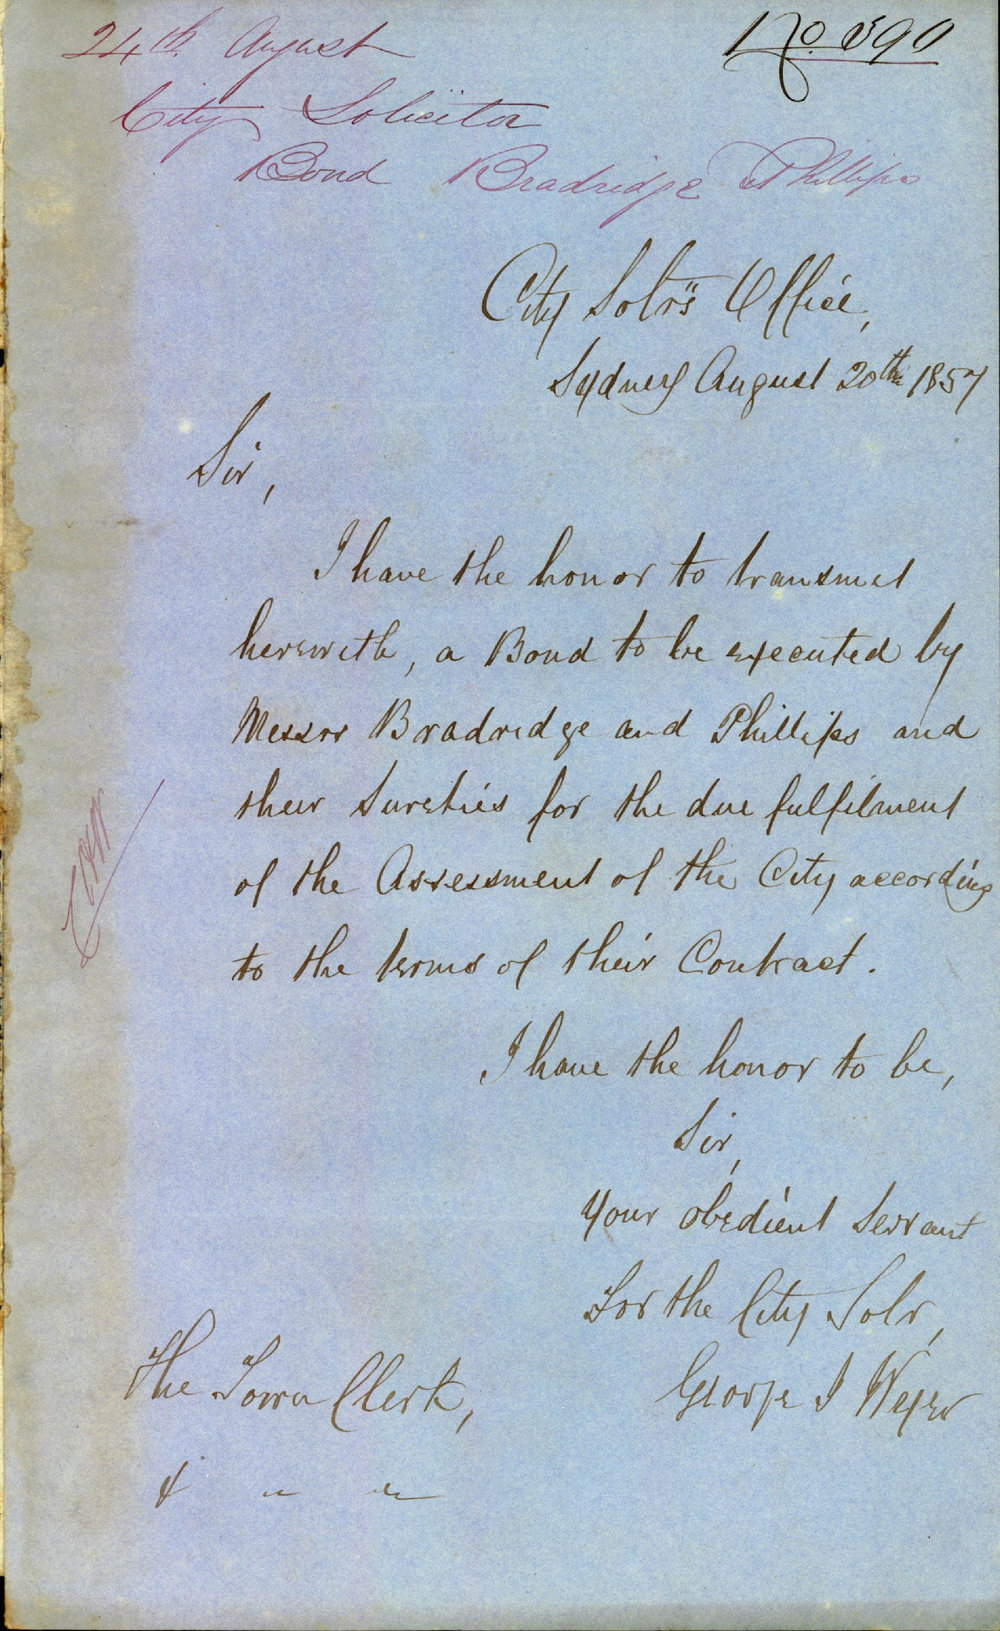 24th. August
No. 890
City Solicitor
Bond Bradridge & Phillips
City Solrs Office,
Sydney August 20th 1857
Sir,
I have the honor to transmit
herewith, a Bond to be executed by
Messrs Bradridge and Phillips and
their Sureties for the due fulfilment
of the Assessment of the City according
to the terms of their Contract.
I have the honor to be,
Sir,
Your obedient Servant
For the City Solr,
George J
The Town Clerk,
&